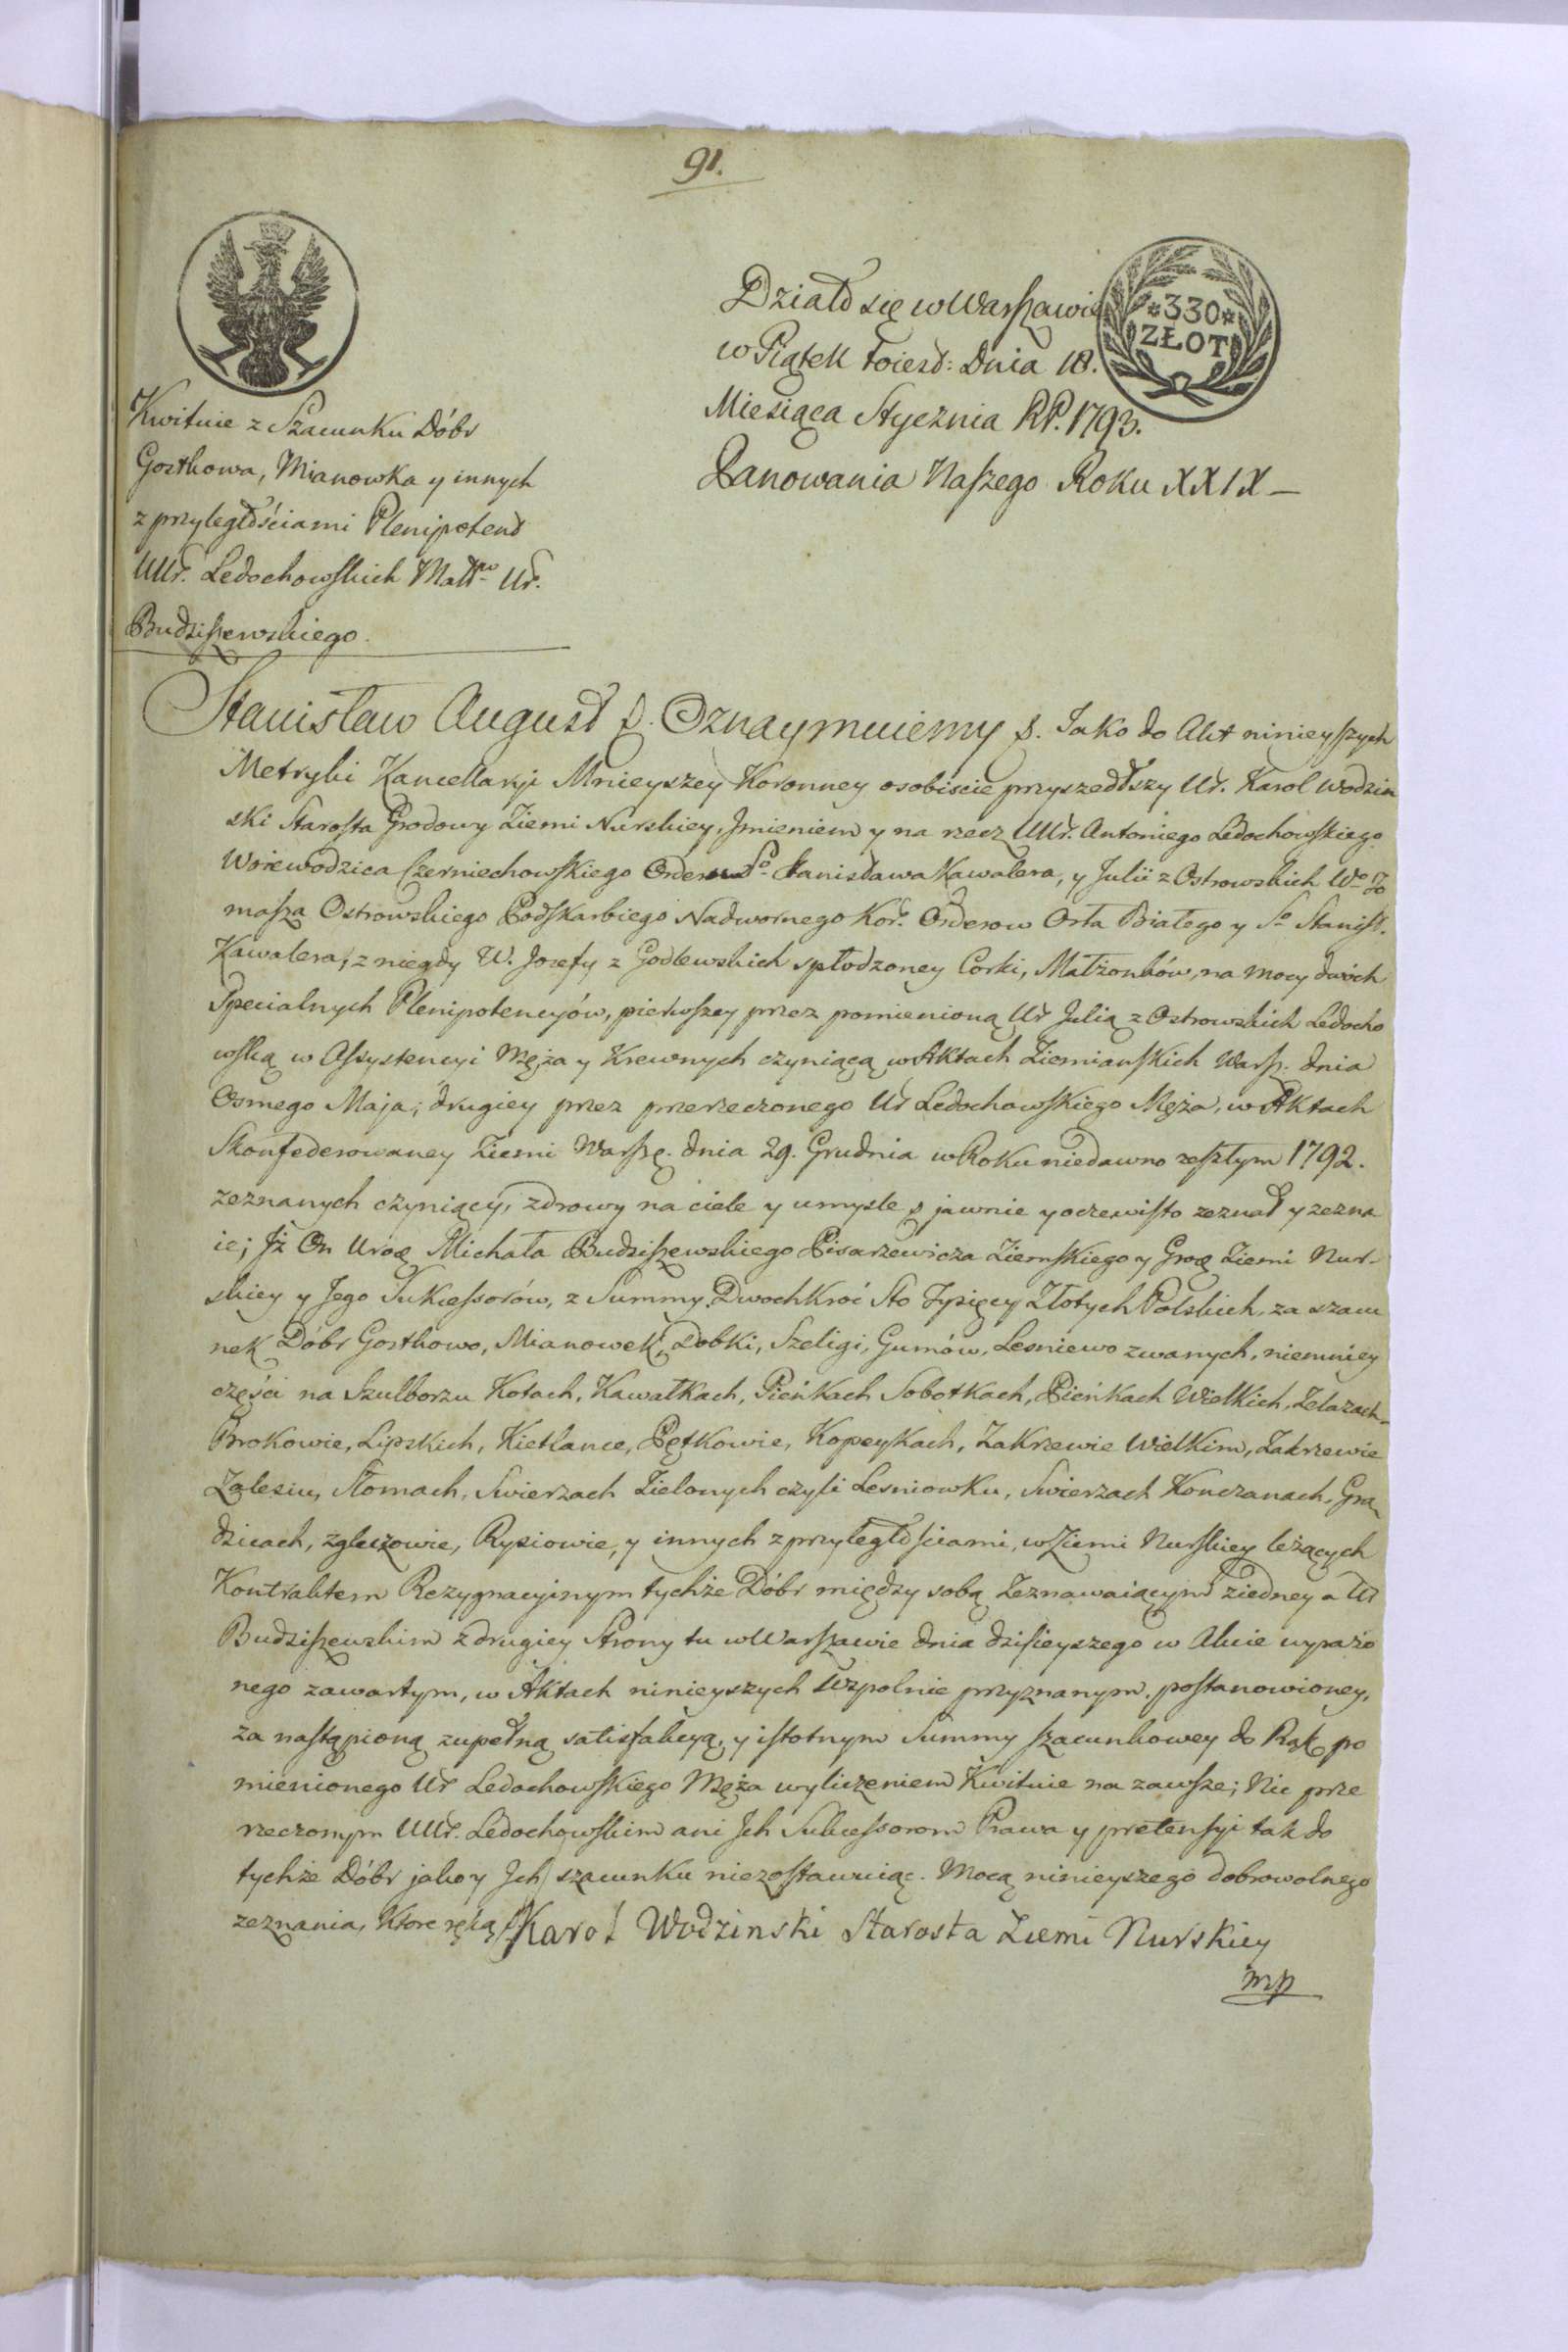 91.
Działo się w Warszawie
w Piątek to iest: Dnia 18.
Miesiąca Stycznia RP. 1793.
Panowania Naszego Roku XXIX —
*330*
ZŁOT
Kwituie z Szacunku Dóbr
Gostkowa, Mianowka y innych
z przyległościami Plenipotent
UUr. Ledochowskich Małż. Ur.
Budziszewskiego.
Stanisław August Oznaymuiemy Jako do Akt ninieyszych
Metryki Kancellaryi Mnieyszey Koronney osobiscie przyszedłszy Ur. Karol Wodzin
ski Starosta Grodowy Ziemi Nurskiey, Imieniem y na rzecz UUr. Antoniego Ledochowskiego
Woiewodzica Czerniechowskiego Orderu So Stanisława Kawalera, y Julii z Ostrowskich Wo To
masza Ostrowskiego Podskarbiego Nadwornego Kor. Orderow Orła Białego y So Stanisł.
Kawalera, z niegdy W. Jozefy z Godlewskich spłodzoney Corki, Małżonków, na mocy dwóch
Specialnych Plenipotencyów, pierwszey przez pomienioną Ur Julią z Ostrowskich Ledocho
wską w Assystencyi Męża y Krewnych czyniącą w Aktach Ziemianskich Warsz. dnia
Osmego Maja; drugiey przez przerzeczonego Ur Ledochowskiego Męża, w Aktach
Skonfederowaney Ziemi Warszę. dnia 29. Grudnia w Roku niedawno zeszłym 1792.
zeznanych czyniący, zdrowy na ciele y umysle jawnie y oczewisto zeznał y zezna
ie; Iż On Uroę Michała Budziszewskiego Pisarzewicza Ziemskiego y Groę Ziemi Nur-
skiey y Jego Sukcessorów, z Summy Dwochkroć Sto Tysięcy Złotych Polskich, za szacu
nek Dóbr Gostkowo, Mianowek, Dobki, Szeligi, Gumów, Lesniewo zwanych, niemniey
części na Szulborzu Kotach, Kawałkach, Pieńkach Sobotkach, Pieńkach Wielkich, Zelazach
Brokowie, Lipskich, Kietlance, Pętkowie, Kopeykach, Zakrzewie Wielkim, Zakrzewie
Zalesiu, Słomach, Swierzach Zielonych czyli Lesniowku, Swierzach Konczanach, Gra
dzicach, Zgleczowie, Rysiowie, y innych z przyległościami, w Ziemi Nurskiey leżących
Kontraktem Rezygnacyinym tychże Dóbr między sobą Zeznawaiącym z iedney a Ur
Budziszewskim z drugiey Strony tu w Warszawie dnia dzisieyszego w Akcie wyrażo
nego zawartym, w Aktach ninieyszych Wzpolnie przyznanym, postanowioney,
za nastąpioną zupełną satisfakcyą, y istotnym Summy szacunkowey do Rąk po
mienionego Ur Ledochowskiego Męża wyliczeniem Kwituie na zawsze; Nic prze
rzeczonym UUr. Ledochowskim ani Ich Sukcessorom Prawa y pretensyi tak do
tychże Dóbr jako y Ich szacunku niezostawuiąc. Mocą ninieyszego dobrowolnego
zeznania, Ktore ręką Karol Wodzinski Starosta Ziemi Nurskiey
mp